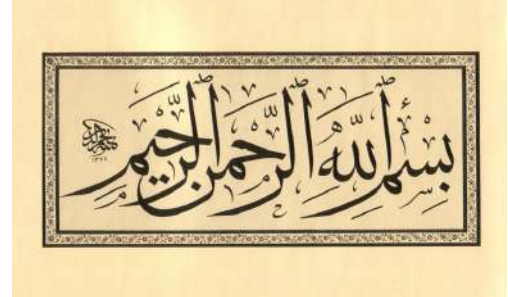 بِسْمِ اللّٰهِ الرَّحْمٰنِ الرَّحِيْمِ
١٣٦٨